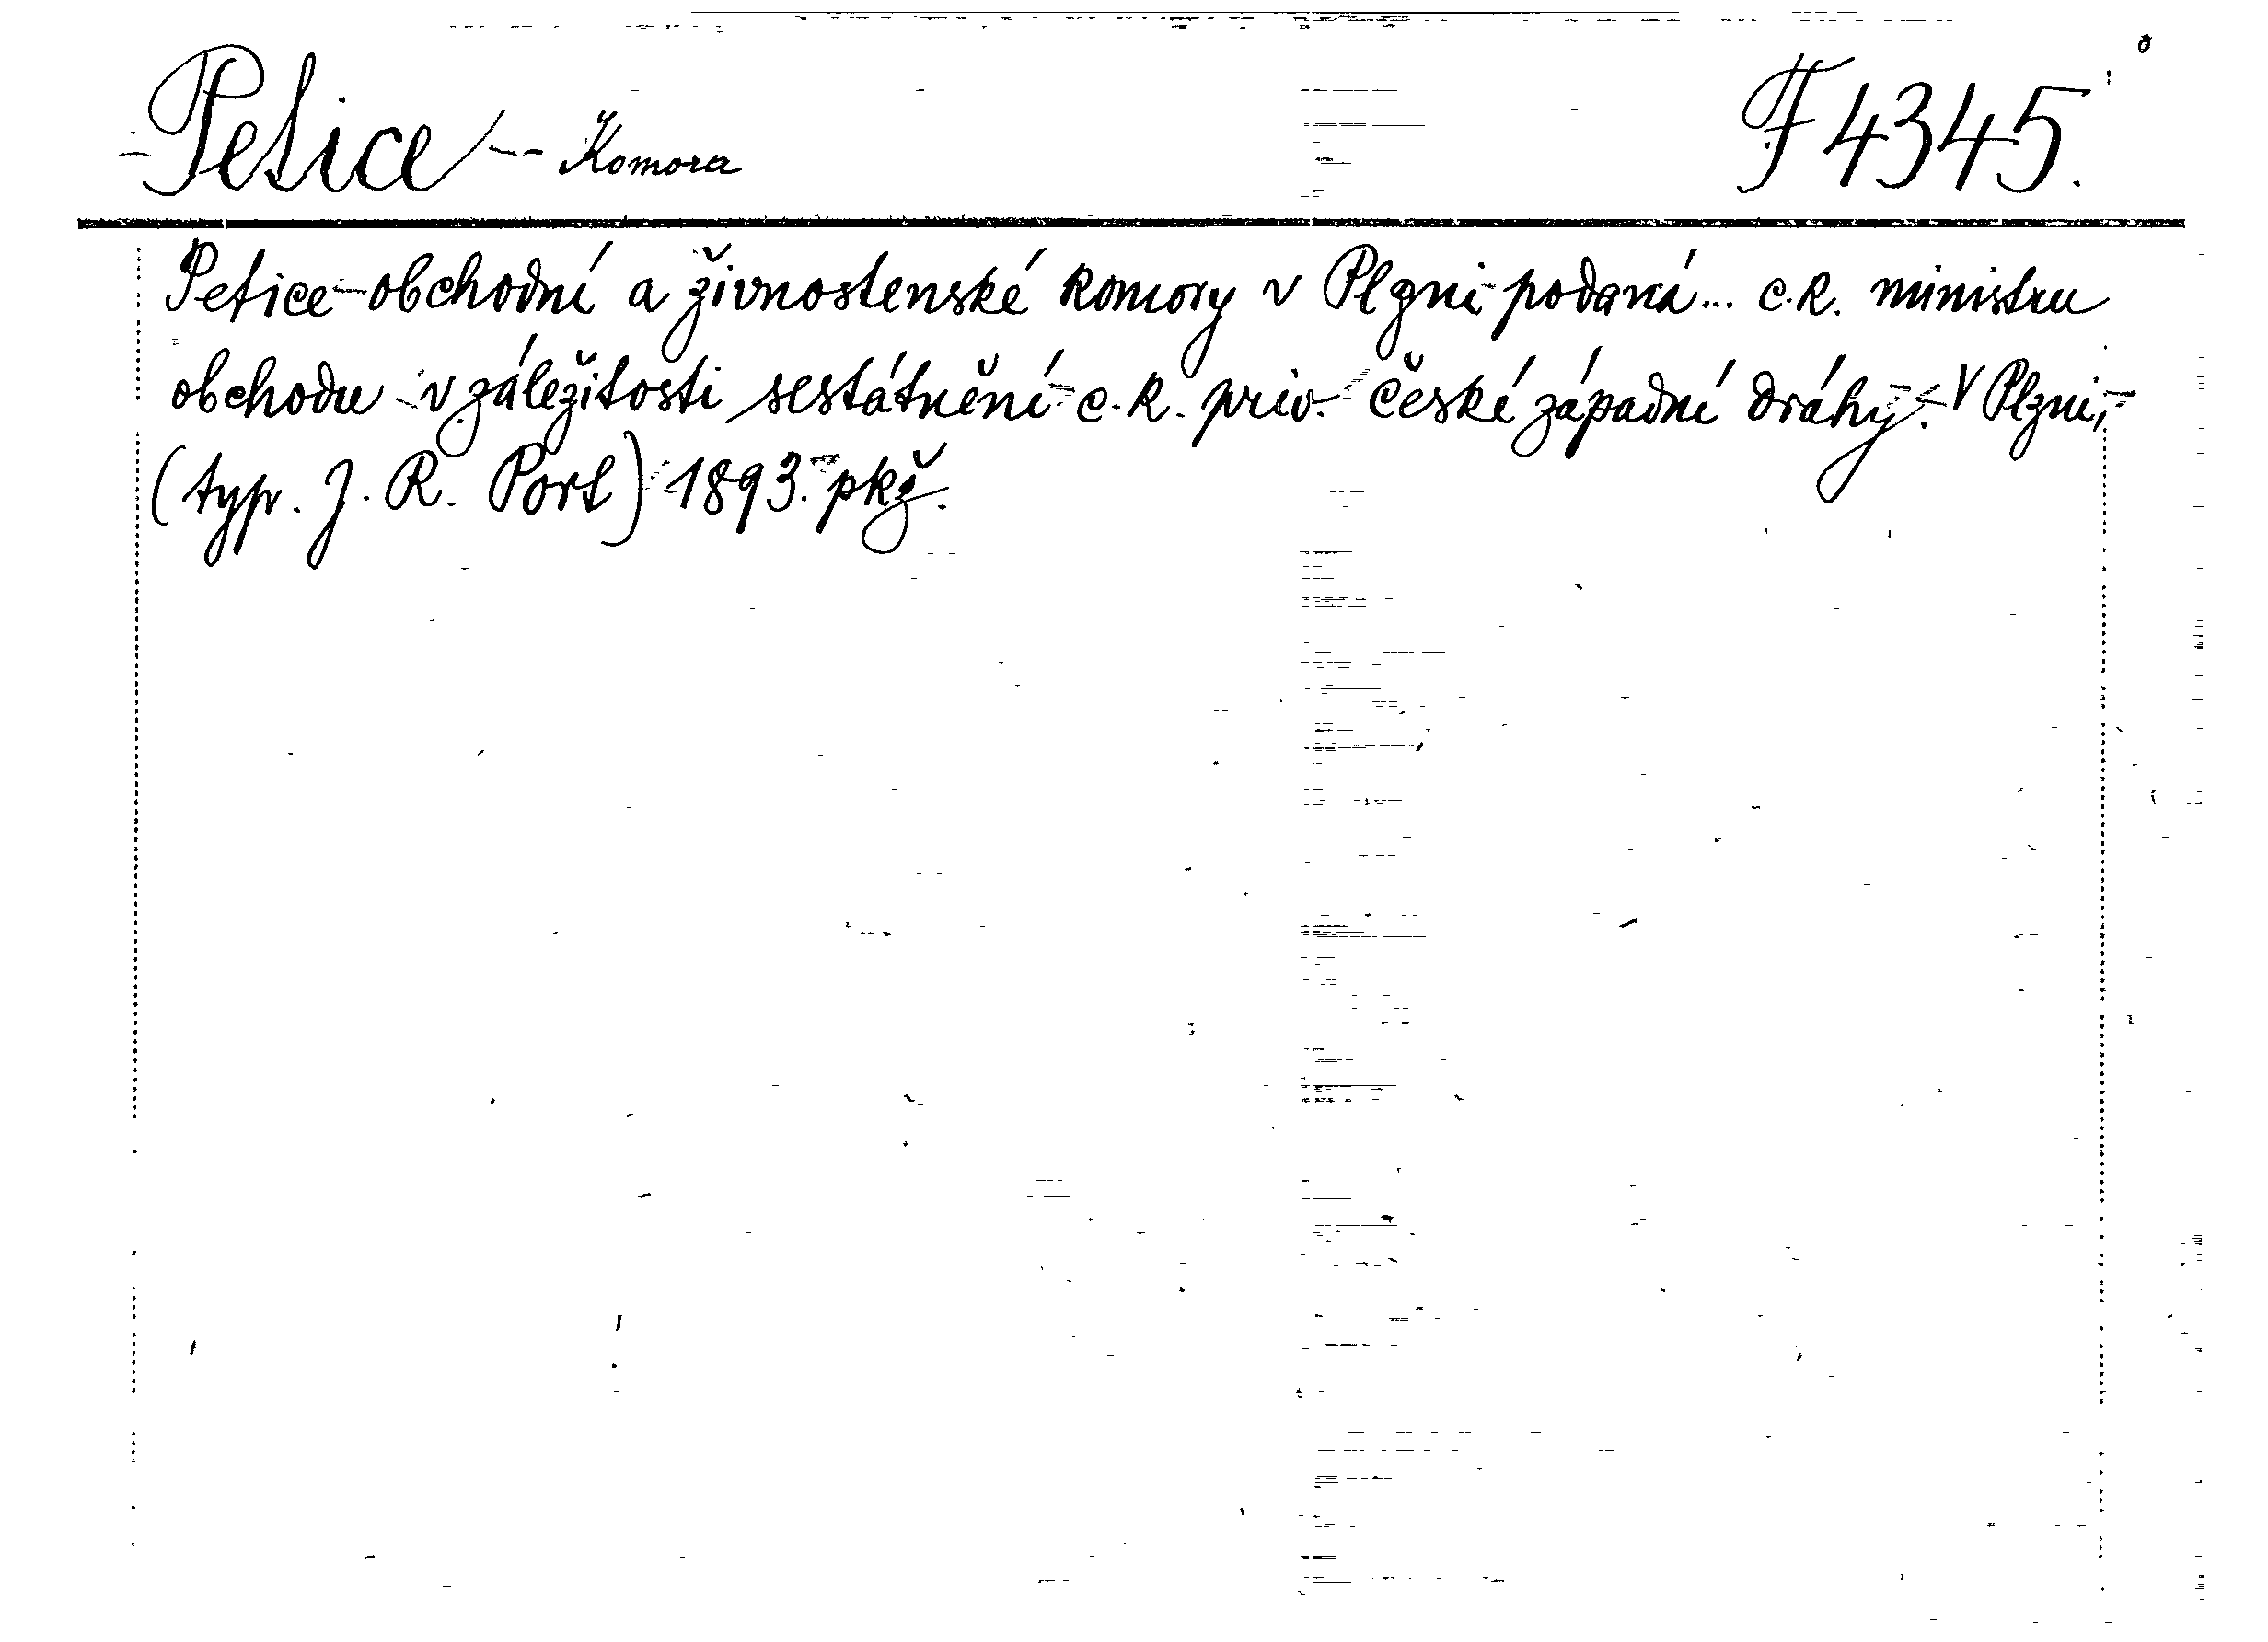 Petice - Komora F 4345.
Petice obchodní a živnostenské komory v Plzni podaná... c. k. ministru
obchodu v záležitosti sestátnění c. k. priv. české západní dráhy. V Plzni,
(typ. J. R. Port) 1893. pkž.